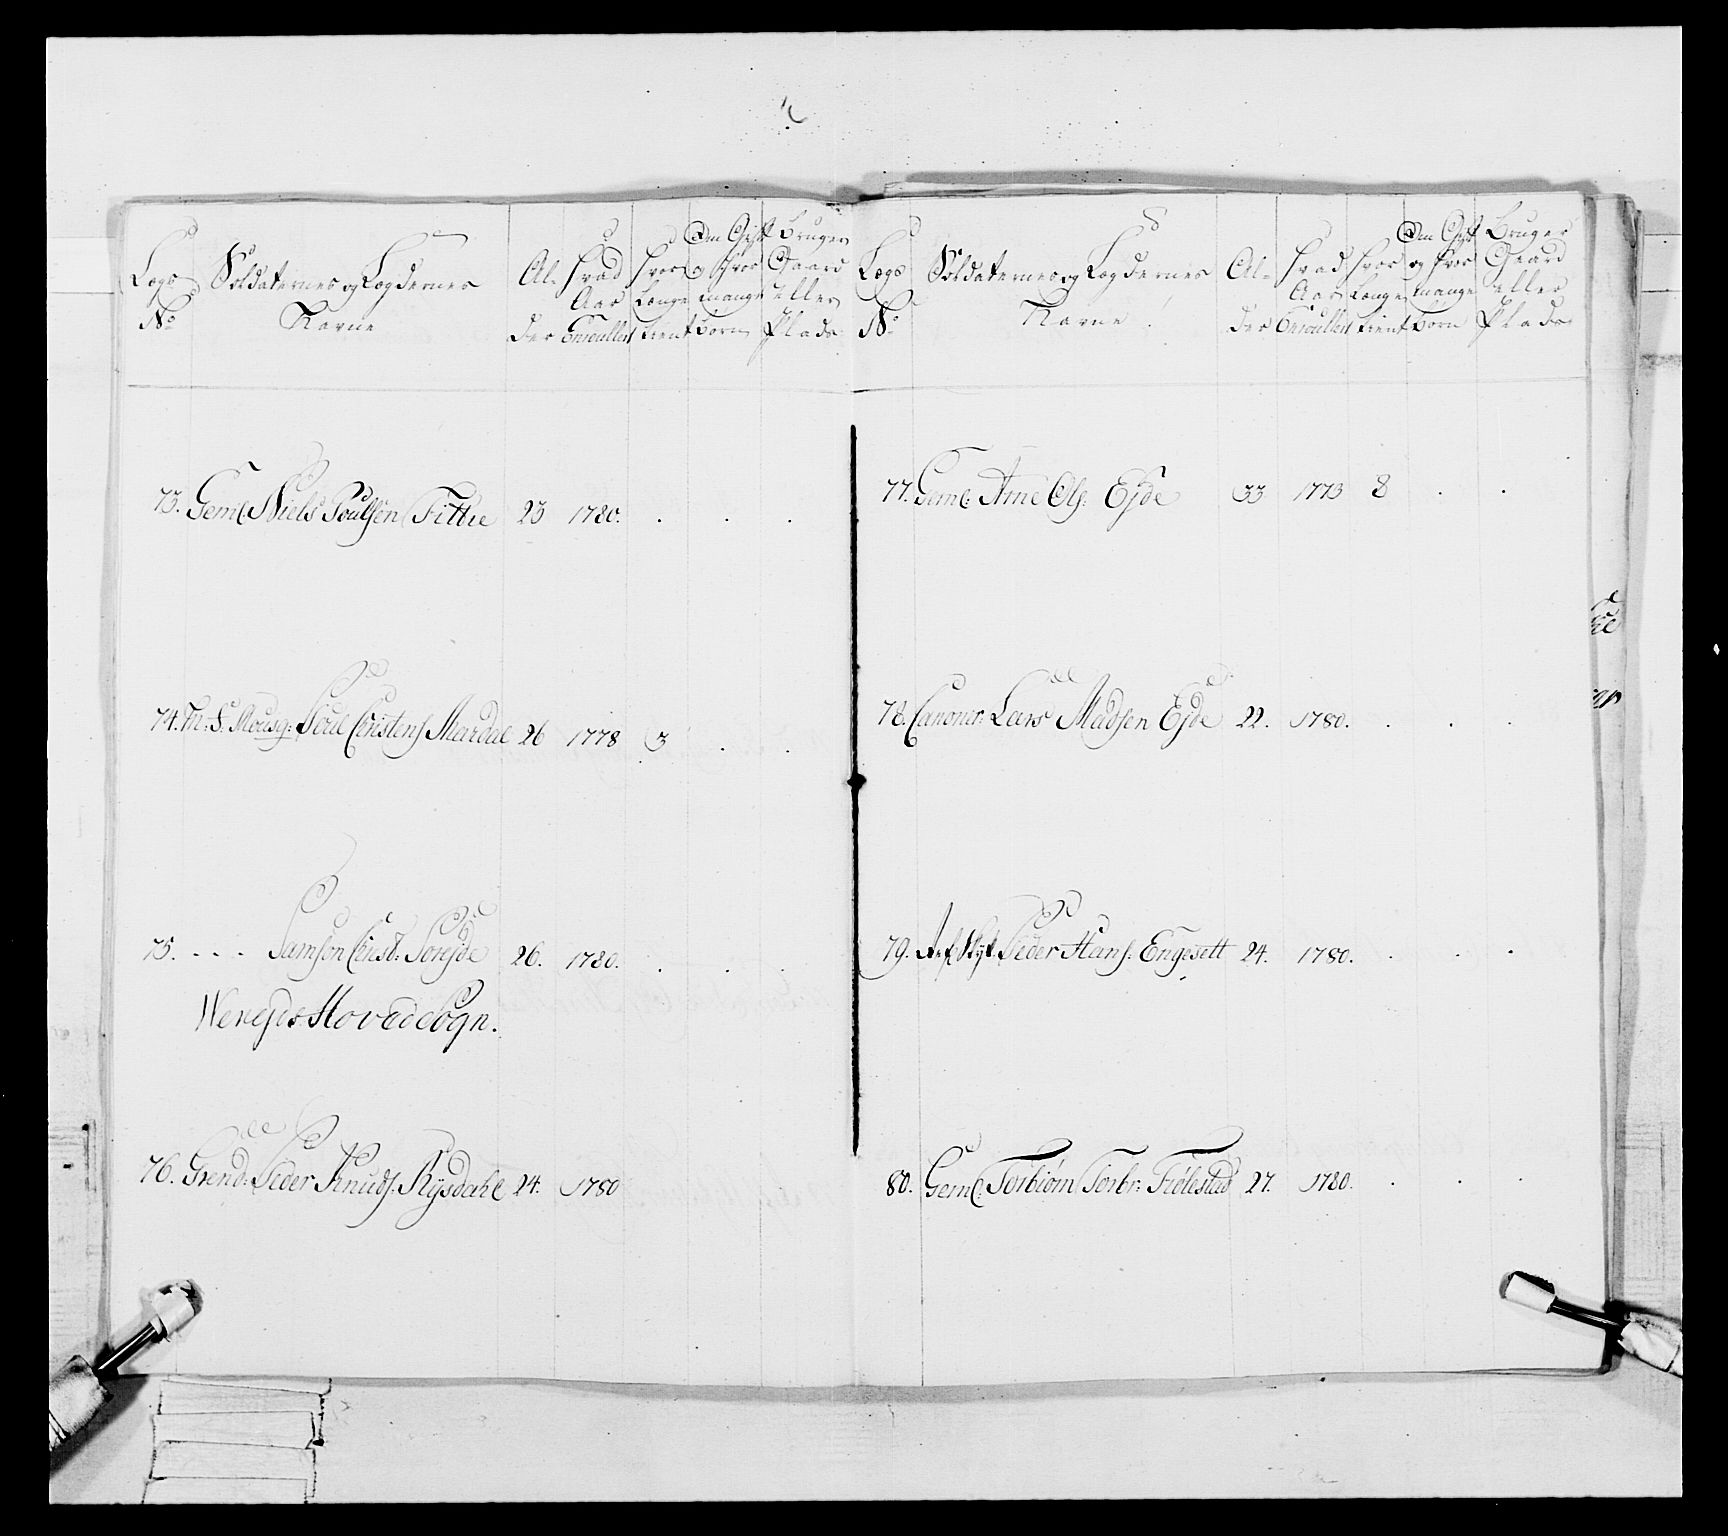 Legs
No
Soldaternes og Legdernes
Navne
Al-
der
Hvad
Aar
Enroullert
Hvor
Længe
tient
Om Gift
og hvor
mange
Børn
Bruger
Gaard
eller
Plads
73. Geml. Niels Poulsen Fittie 23 1780. . . .
74. M: S. Mousq: Poul Christens Mardal 26 1778 3 . .
75. - - - Samson Christ: Sørejde 26. 1780. . . .
Werejds Hoved Sogn.
76. Grend: Peder Knuds: Rysdahl 24. 1780
Legs
No
Soldaternes og Legdernes
Navne
Al-
der
Hvad
Aar
Enroullert
Hvor
Længe
tient
Om Gift
og hvor
mange
Børn
Bruger
Gaard
eller
Plads
77. Geml: Arne Ols: Ejde 33 1773 8 . .
78. Canoner: Lars Madsen Ejde 22. 1780. . . .
79. Peder Hans: Engesett 24. 1780. . . .
80. Geml: Torbiörn Torbr: Fiölestad 27. 1780. . . .